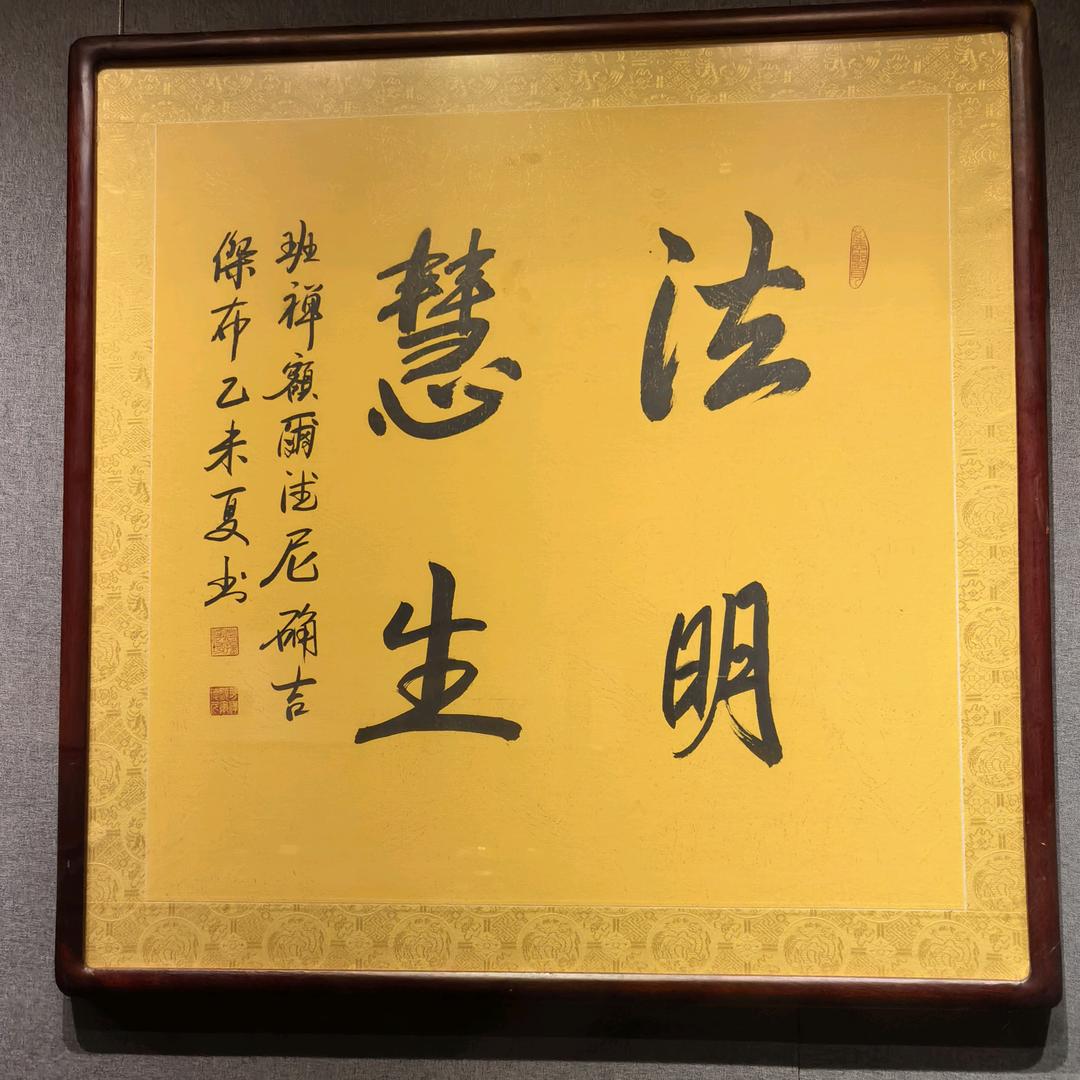 法明
慧生
班禅額爾德尼确吉
傑布乙未夏书